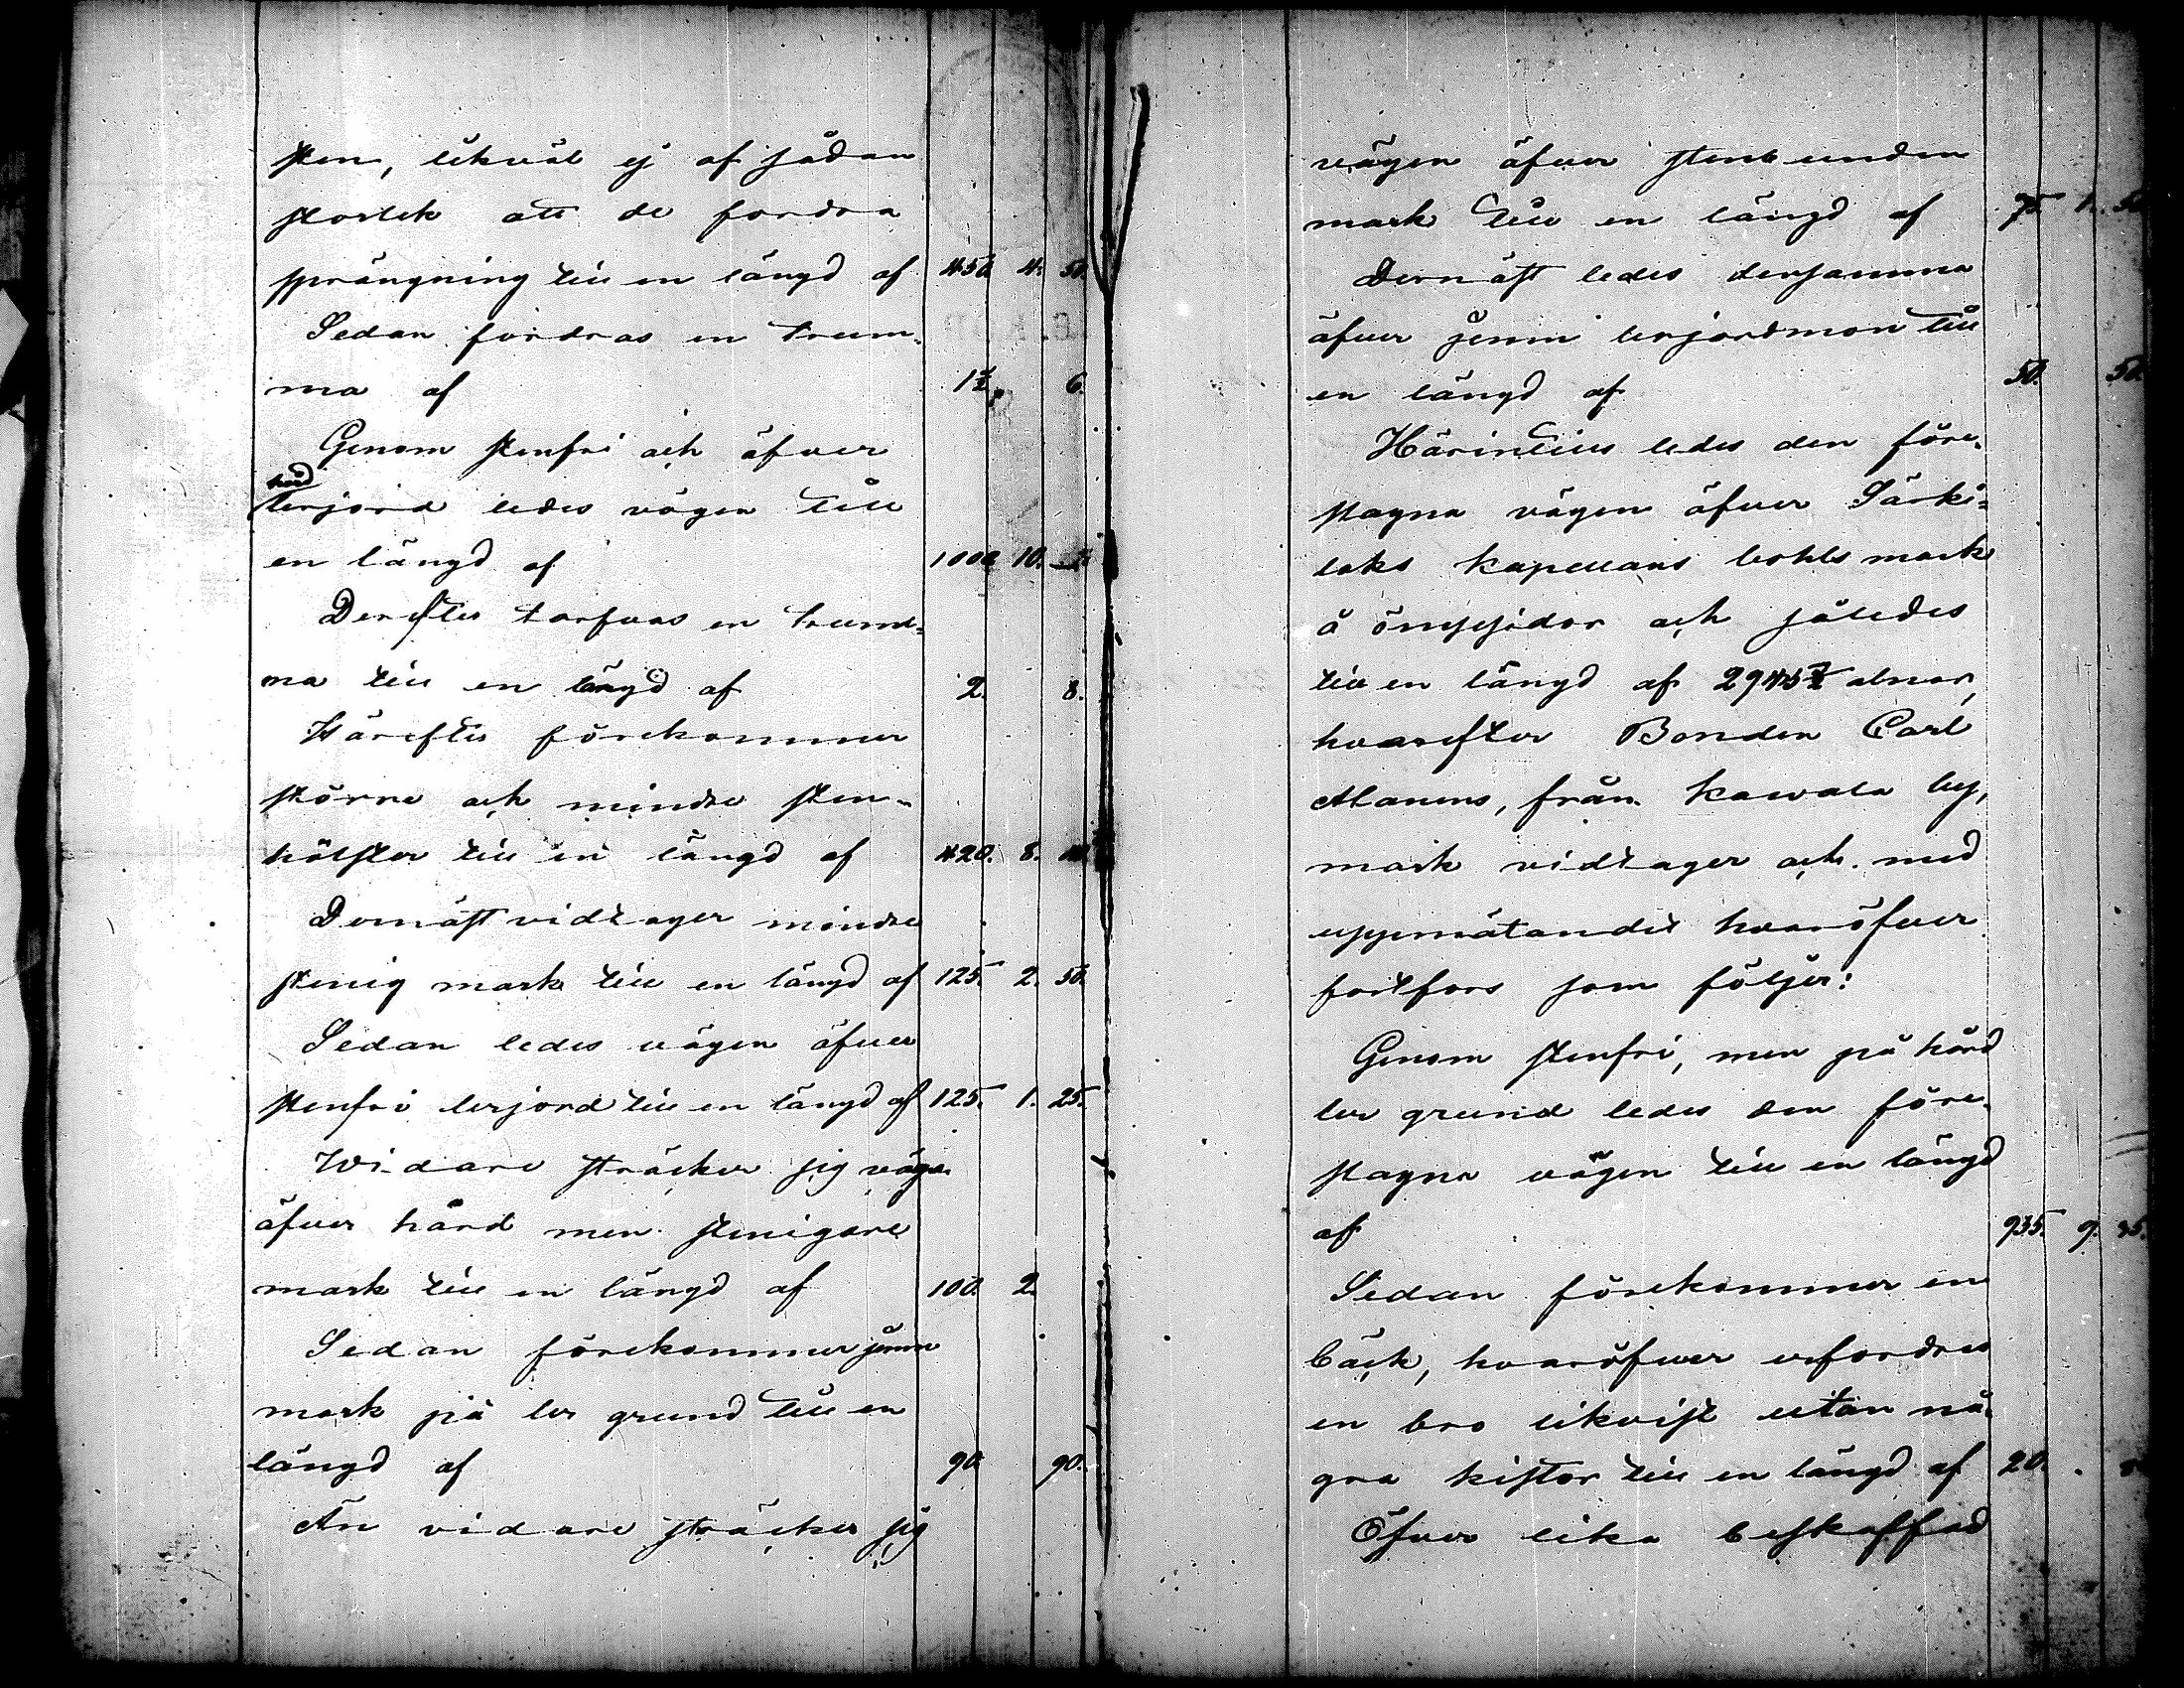 sten, likväl ej af sådan
storlek att de fordra
sprängning till en längd af 450. 4. 50.
Sedan fordras en trum-
ma af 1½. 6.
Genom stenfri och äfver
hård
lerjord ledes vägen till
en längd af 1000 10.
Derefter tarfvas en trum-
ma till en längd af 2. 8.
Härefter förekommer
större och mindre sten-
hölster till en längd af 420. 8. 40.
Dernäst vidtager mindre
stenig mark till en längd af 125. 2. 50.
Sedan ledes vägen äfver
stenfri lerjord till en längd af 125. 1. 25.
Widare sträcker sig vägen
äfver hård men stenigare
mark till en längd af 100. 2.
Sedan förekommer jemn
mark på ler grund till en
längd af 90. 90.
Än vidare sträcker sig
vägen äfver stenbunden
mark till en längd af 75. 1. 50
Dernäst ledes densamma
äfver jemn lerjordmon till
en längd af 50. 50.
Härintills ledes den före-
slagna vägen äfver Särki-
laks kapellans bohls mark
å ömse sidor och således
till en längd af 2943½ alnar,
hvarefter Bonden Carl
Alanens, från Kawala by,
mark vidtager och med
uppmätandet hvaröfver
fortfors som följer:
Genom stenfri, men på hård
ler grund ledes den före-
slagna vägen till en längd
af 935. 9. 35.
Sedan förekommer en
bäck, hvaröfver erfordras
en bro likvist utan nå-
gra kistor till en längd af 20.
Öfver lika beskaffad